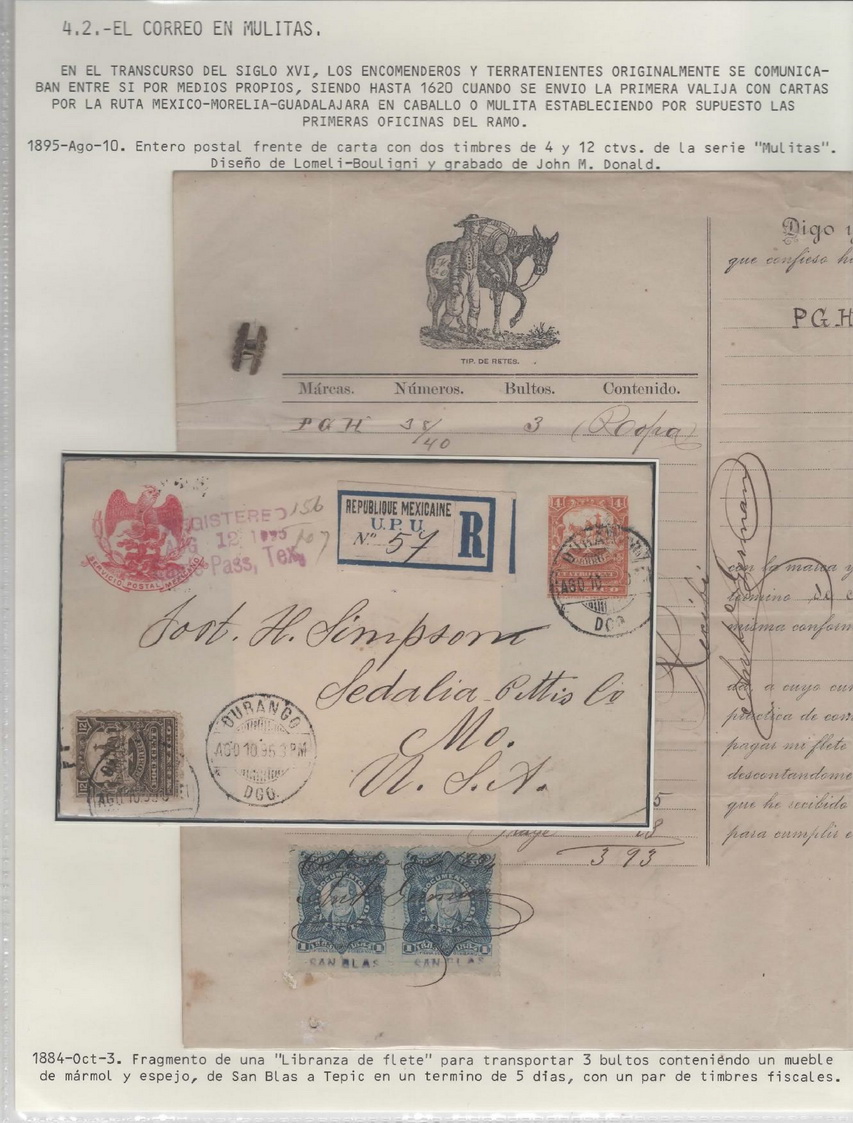 4.2.-EL CORREO EN MULITAS.
EN EL TRANSCURSO DEL SIGLO XVI, LOS ENCOMENDEROS Y TERRATENIENTES ORIGINALMENTE SE COMUNICA-
BAN ENTRE SI POR MEDIOS PROPIOS, SIENDO HASTA 1620 CUANDO SE ENVIO LA PRIMERA VALIJA CON CARTAS
POR LA RUTA MEXICO-MORELIA-GUADALAJARA EN CABALLO O MULITA ESTABLECIENDO POR SUPUESTO LAS
PRIMERAS OFICINAS DEL RAMO.
1895-Ago-10. Entero postal frente de carta con dos timbres de 4 y 12 ctvs. de la serie "Mulitas".
Diseño de Lomeli-Bouligni y grabado de John M. Donald.
TIP. DE RETES.
Márcas. Números. Bultos. Contenido.
P G H 38/40 3 (Ropa)
Digo y
que confieso h
P G H
con la marca y
termino de
misma conform
da, a cuyo cum
práctica de com
pagar mi flete
descontandome
que he recibido
para cumplir
Recibí
GISTERED
12 1895
Pass, Tex.
156
107
SERVICIO POSTAL MEXICANO
REPUBLIQUE MEXICAINE
U.P.U.
No. 57
R
4
AGO 10
DGO.
Post. H. Simpson
Sedalia Pettis Co
Mo.
U. S. A.
12
DURANGO
AGO 10 95 3 PM
DGO.
AGO 10
5
18
3 93
SAN BLAS SAN BLAS
1884-Oct-3. Fragmento de una "Libranza de flete" para transportar 3 bultos conteniéndo un mueble
de mármol y espejo, de San Blas a Tepic en un termino de 5 dias, con un par de timbres fiscales.